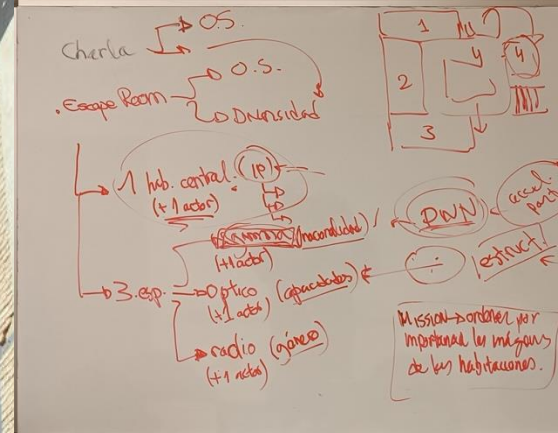 Charla
O.S.
.Escape Room
O.S.
Diversidad
1
2
3
4
4
1 hab. central.
(+1 actor)
(IP)
(nacionalidad)
(+1 actor)
3. esp.
Optico (capacidades)
(+1 actor)
radio (género)
(+1 actor)
DWN
acel.
part
estruct.
Mission → ordenar por
importancia las imágenes
de las habitaciones.